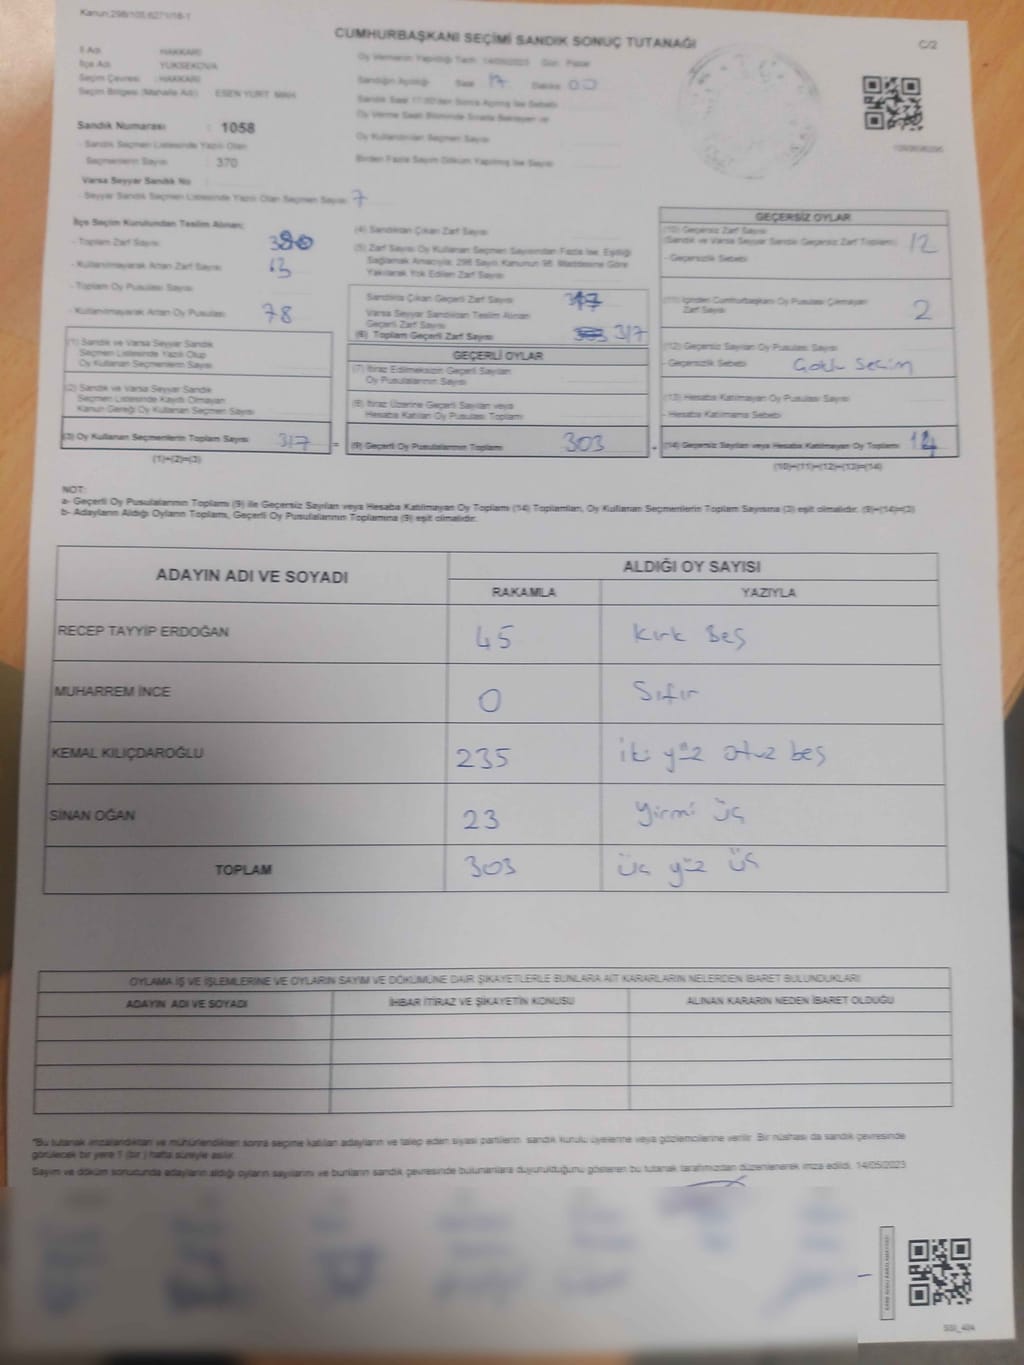 Kanun:298/105,6271/18-1
CUMHURBAŞKANI SEÇİMİ SANDIK SONUÇ TUTANAĞI
C/2
İl Adı HAKKARİ
İlçe Adı YÜKSEKOVA
Seçim Çevresi : HAKKARİ
Seçim Bölgesi (Mahalle Adı) : ESEN YURT MAH.
Oy Vermenin Yapıldığı Tarih 14/05/2023 Gün Pazar
Sandığın Açıldığı Saat 17 Dakika 00
Sandık Saat 17.00'den Sonra Açılmış İse Sebebi
Oy Verme Saati Bitiminde Sırada Bekleyen ve
Oy Kullandırılan Seçmen Sayısı
Birden Fazla Sayım Döküm Yapılmış İse Sayısı
Sandık Numarası : 1058
- Sandık Seçmen Listesinde Yazılı Olan
Seçmenlerin Sayısı : 370
Varsa Seyyar Sandık No
- Seyyar Sandık Seçmen Listesinde Yazılı Olan Seçmen Sayısı 7
İlçe Seçim Kurulundan Teslim Alınan;
- Toplam Zarf Sayısı 380
- Kullanılmayarak Artan Zarf Sayısı 63
- Toplam Oy Pusulası Sayısı
- Kullanılmayarak Artan Oy Pusulası 78
(1) Sandık ve Varsa Seyyar Sandık
Seçmen Listesinde Yazılı Olup
Oy Kullanan Seçmenlerin Sayısı
(2) Sandık ve Varsa Seyyar Sandık
Seçmen Listesinde Kayıtlı Olmayan
Kanun Gereği Oy Kullanan Seçmen Sayısı
(3) Oy Kullanan Seçmenlerin Toplam Sayısı 317
(1)+(2)=(3)
(4) Sandıktan Çıkan Zarf Sayısı
(5) Zarf Sayısı Oy Kullanan Seçmen Sayısından Fazla İse, Eşitliği
Sağlamak Amacıyla, 298 Sayılı Kanunun 98. Maddesine Göre
Yakılarak Yok Edilen Zarf Sayısı
Sandıkta Çıkan Geçerli Zarf Sayısı 317
Varsa Seyyar Sandıktan Teslim Alınan
Geçerli Zarf Sayısı
(6) Toplam Geçerli Zarf Sayısı 317
GEÇERLİ OYLAR
(7) İtiraz Edilmeksizin Geçerli Sayılan
Oy Pusulalarının Sayısı
(8) İtiraz Üzerine Geçerli Sayılan veya
Hesaba Katılan Oy Pusulası Toplamı
(9) Geçerli Oy Pusulalarının Toplamı 303
GEÇERSİZ OYLAR
(10) Geçersiz Zarf Sayısı
(Sandık ve Varsa Seyyar Sandık Geçersiz Zarf Toplamı) 12
- Geçersizlik Sebebi
(11) İçinden Cumhurbaşkanı Oy Pusulası Çıkmayan
Zarf Sayısı 2
(12) Geçersiz Sayılan Oy Pusulası Sayısı
- Geçersizlik Sebebi Çoklu Seçim
(13) Hesaba Katılmayan Oy Pusulası Sayısı
- Hesaba Katılmama Sebebi
(14) Geçersiz Sayılan veya Hesaba Katılmayan Oy Toplamı 14
(10)+(11)+(12)+(13)=(14)
NOT:
a- Geçerli Oy Pusulalarının Toplamı (9) ile Geçersiz Sayılan veya Hesaba Katılmayan Oy Toplamı (14) Toplamları, Oy Kullanan Seçmenlerin Toplam Sayısına (3) eşit olmalıdır. (9)+(14)=(3)
b- Adayların Aldığı Oyların Toplamı, Geçerli Oy Pusulalarının Toplamına (9) eşit olmalıdır.
ADAYIN ADI VE SOYADI ALDIĞI OY SAYISI
RAKAMLA YAZIYLA
RECEP TAYYİP ERDOĞAN 45 Kırk Beş
MUHARREM İNCE 0 Sıfır
KEMAL KILIÇDAROĞLU 235 iki yüz otuz beş
SİNAN OĞAN 23 Yirmi üç
TOPLAM 303 üç yüz üç
OYLAMA İŞ VE İŞLEMLERİNE VE OYLARIN SAYIM VE DÖKÜMÜNE DAİR ŞİKAYETLERLE BUNLARA AİT KARARLARIN NELERDEN İBARET BULUNDUKLARI
ADAYIN ADI VE SOYADI İHBAR İTİRAZ VE ŞİKAYETİN KONUSU ALINAN KARARIN NEDEN İBARET OLDUĞU
*Bu tutanak imzalandıktan ve mühürlendikten sonra seçime katılan adayların ve talep eden siyasi partilerin sandık kurulu üyelerine veya gözlemcilerine verilir. Bir nüshası da sandık çevresinde
görülecek bir yere 1 (bir ) hafta süreyle asılır.
Sayım ve döküm sonucunda adayların aldığı oyların sayılarını ve bunların sandık çevresinde bulunanlara duyurulduğunu gösteren bu tutanak tarafımızdan düzenlenerek imza edildi. 14/05/2023